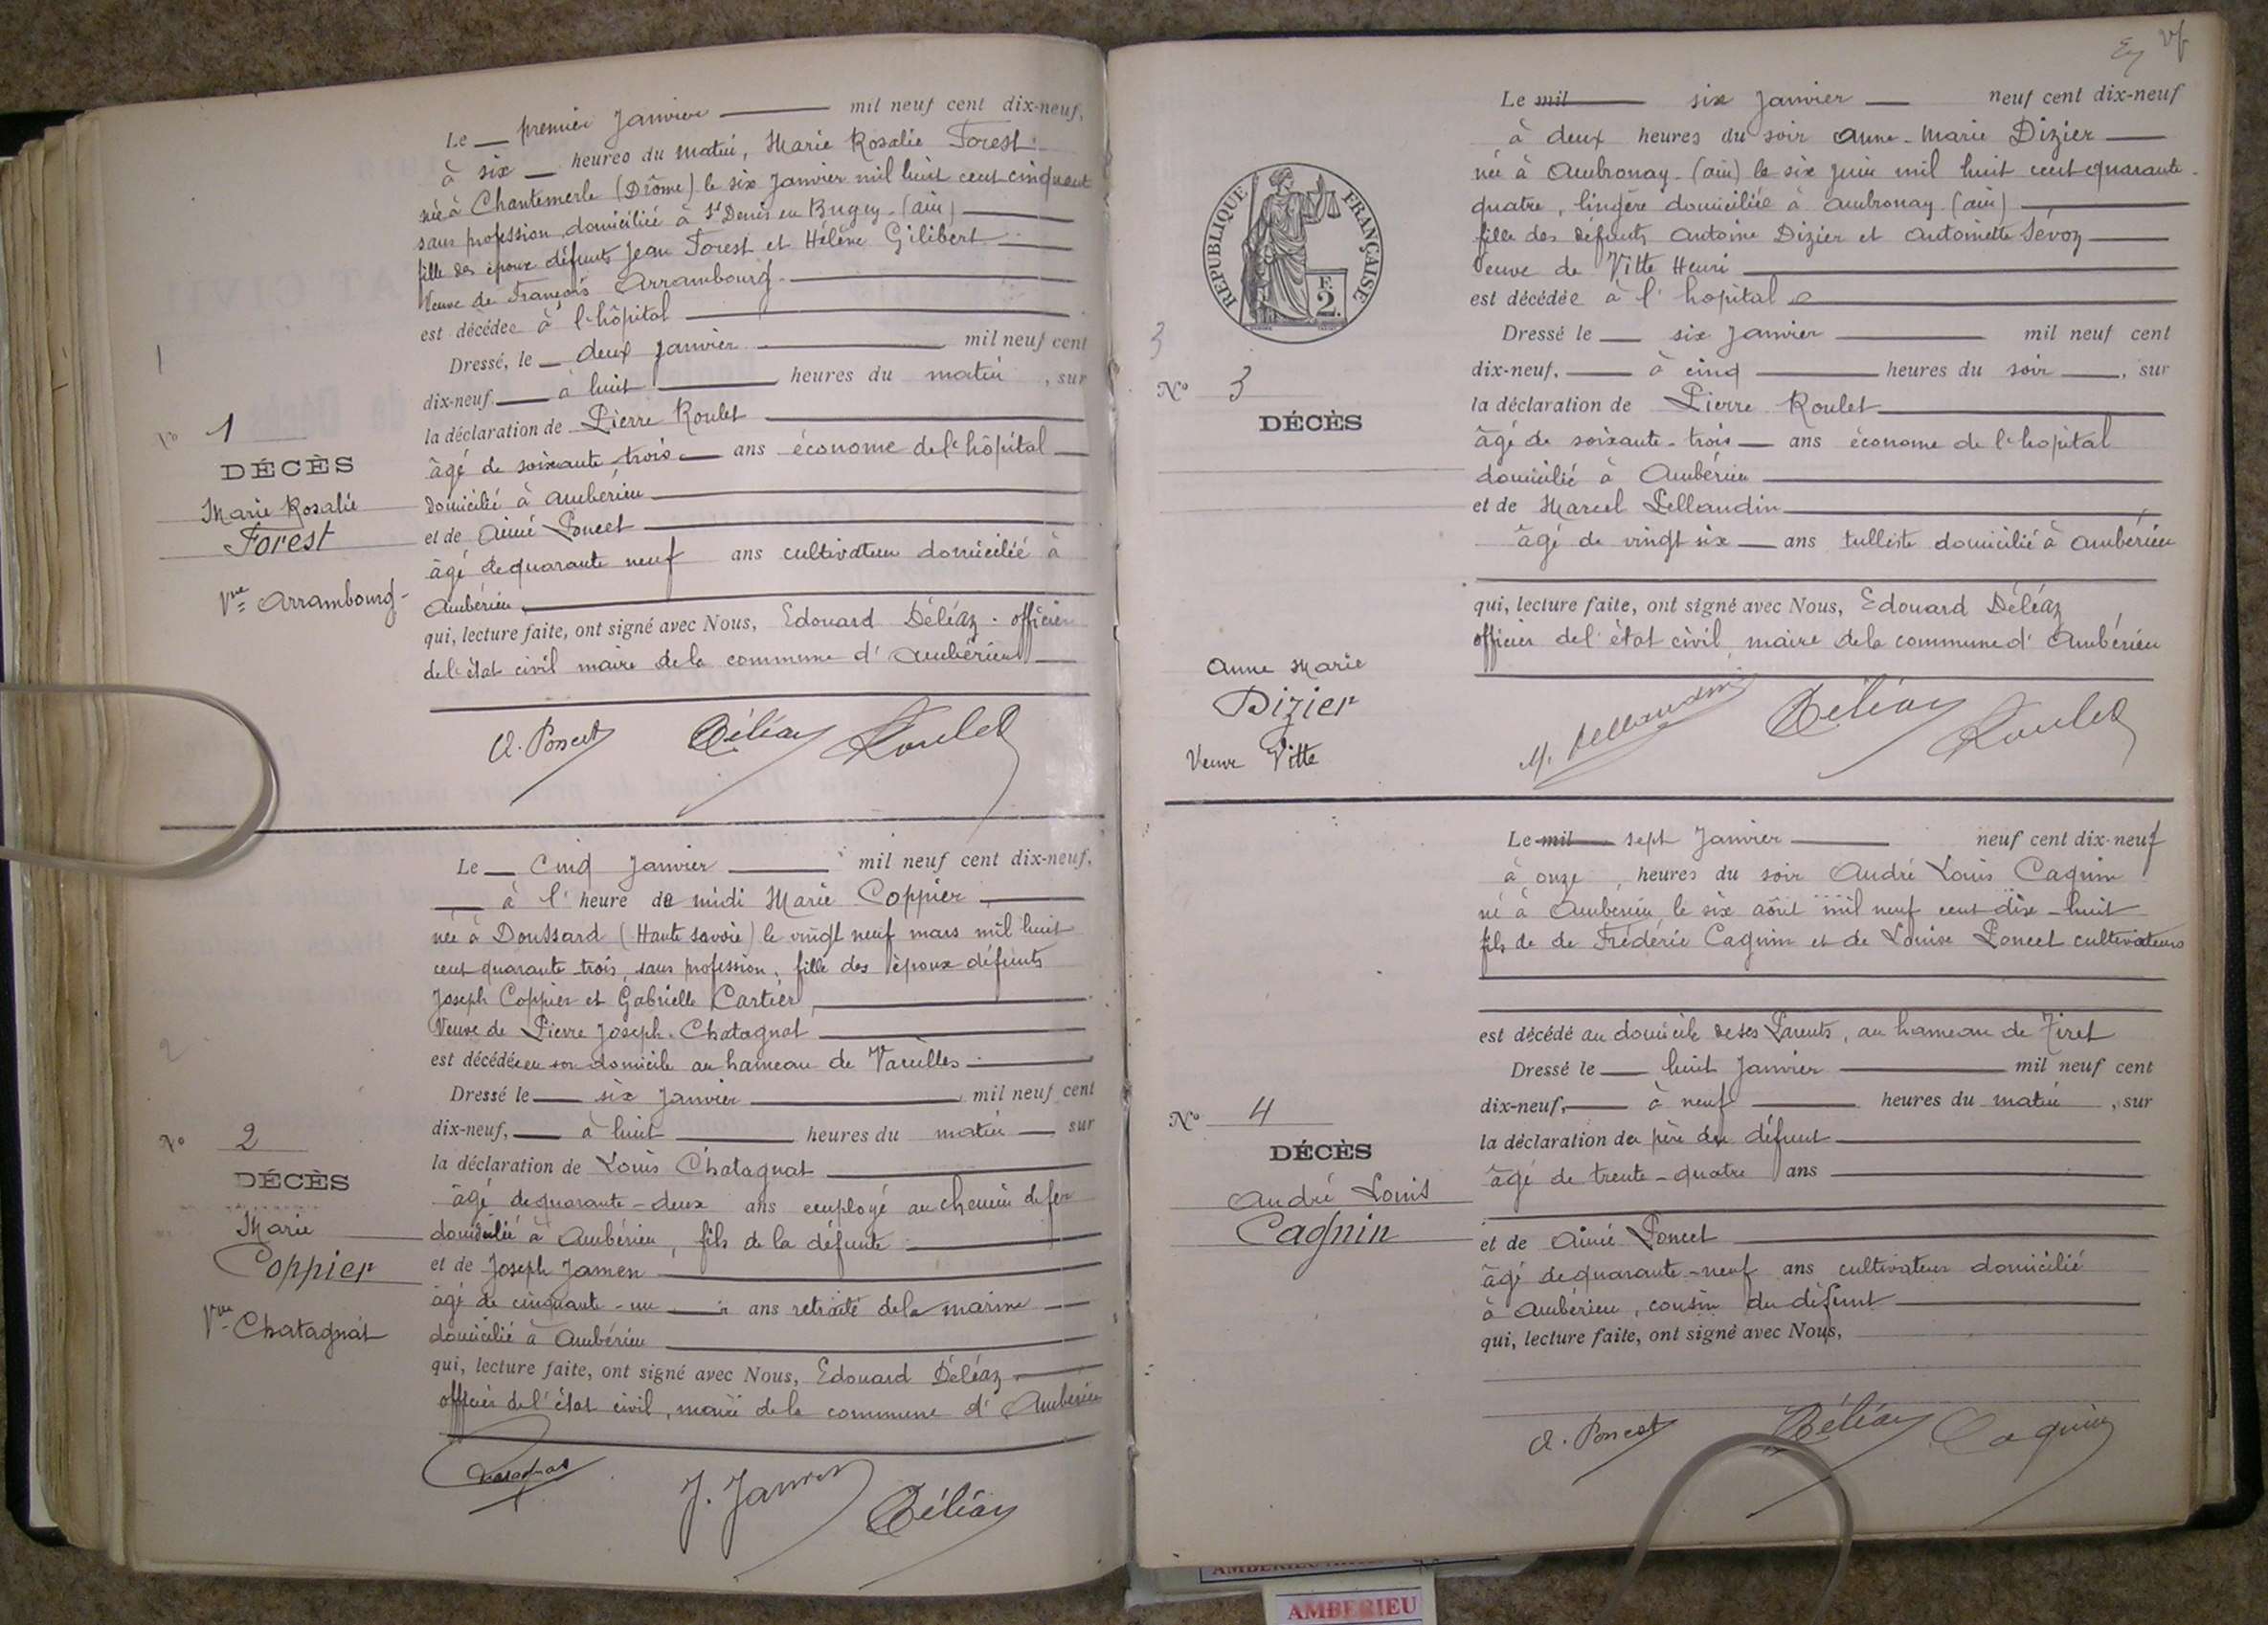 N° 1
DÉCÈS
Marie Rosalie
Forest
Vve Arrambourg
Le premier Janvier mil neuf cent dix-neuf,
à six heures du matin, Marie Rosalie Forest
née à Chantemerle (Drôme) le six Janvier mil huit cent cinquant
sans profession, domiciliée à St Denis en Bugey (ain)
fille des époux défunts Jean Forest et Hélène Gilibert
Veuve de François Arrambourg
est décédée à l'hôpital
Dressé, le deux Janvier mil neuf cent
dix-neuf, à huit heures du matin, sur
la déclaration de Pierre Roulet
âgé de soixante trois ans économe de l'hôpital
domicilié à Ambérieu
et de Aimé Poncet
âgé de quarante neuf ans cultivateur domicilié à
Ambérieu
qui, lecture faite, ont signé avec Nous, Edouard Déléaz officier
de l'état civil maire de la commune d'Ambérieu
A. Poncet Déléaz Roulet
N° 2
DÉCÈS
Marie
Coppier
Vve Chatagnat
Le Cinq Janvier mil neuf cent dix-neuf,
à l'heure de midi Marie Coppier
née à Doussard (Haute Savoie) le vingt neuf mars mil huit
cent quarante trois, sans profession, fille des époux défunts
Joseph Coppier et Gabrielle Cartier,
Veuve de Pierre Joseph Chatagnat
est décédée en son domicile au hameau de Vareilles
Dressé le six Janvier mil neuf cent
dix-neuf, à huit heures du matin sur
la déclaration de Louis Chatagnat
âgé de quarante-deux ans employé au chemin de fer
domicilié à Ambérieu, fils de la défunte
et de Joseph Jamen
âgé de cinquante-un ans retraité de la marine
domicilié à Ambérieu
qui, lecture faite, ont signé avec Nous, Edouard Déléaz
officier de l'état civil, maire de la commune d'Ambérieu
Chatagnat J. Jamen Déléaz
RÉPUBLIQUE FRANÇAISE
F. 2.
3
N° 3
DÉCÈS
Anne Marie
Dizier
Veuve Vitte
Le mil six Janvier neuf cent dix-neuf
à deux heures du soir Anne-Marie Dizier
née à Ambronay (ain) le six juin mil huit cent quarante-
quatre, lingère domiciliée à Ambronay (ain)
fille des défunts Antoine Dizier et Antoinette Sévoz
Veuve de Vitte Henri
est décédée à l'hopital
Dressé le six Janvier mil neuf cent
dix-neuf, à cinq heures du soir, sur
la déclaration de Pierre Roulet
âgé de soixante-trois ans économe de l'hopital
domicilié à Ambérieu
et de Marcel Pellaudin
âgé de vingt six ans tulliste domicilié à Ambérieu
qui, lecture faite, ont signé avec Nous, Edouard Déléaz
officier de l'état civil, maire de la commune d'Ambérieu
M. Pellaudin Déléaz Roulet
N° 4
DÉCÈS
André Louis
Cagnin
Le mil sept Janvier neuf cent dix-neuf
à onze heures du soir André Louis Cagnin
né à Ambérieu le six août mil neuf cent dix-huit
fils de de Frédéric Cagnin et de Louise Poncet cultivateurs
est décédé au domicile de ses Parents, au hameau de Tiret
Dressé le huit Janvier mil neuf cent
dix-neuf, à neuf heures du matin, sur
la déclaration du père du défunt
âgé de trente-quatre ans
et de Aimé Poncet
âgé de quarante-neuf ans cultivateur domicilié
à Ambérieu, cousin du défunt
qui, lecture faite, ont signé avec Nous,
A. Poncet Déléaz Cagnin
AMBERIEU